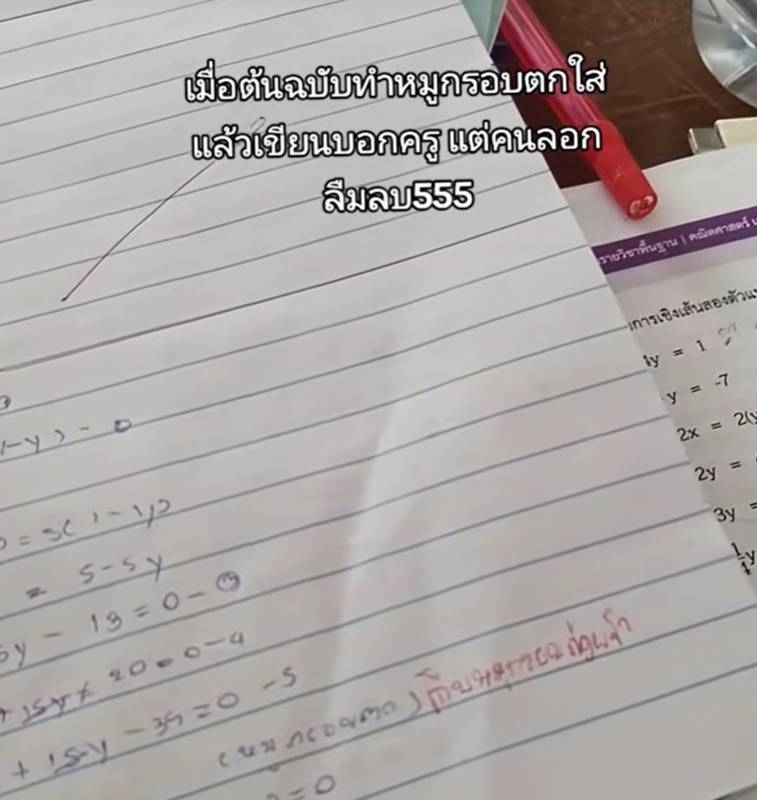 เมื่อต้นฉบับทำหมูกรอบตกใส่
แล้วเขียนบอกครู แต่คนลอก
ลืมลบ555
รายวิชาพื้นฐาน | คณิตศาสตร์
การเชิงเส้นสองตัวแ
y = 1
y = -7
2x = 2(
2y =
3y =
1/4y
-y) - 0
= 5 - 5y
y - 13 = 0 -
+ 15y + 20 = 0 - 4
+ 15y - 39 = 0 - 5
(หมูกรอบตก)
= 0